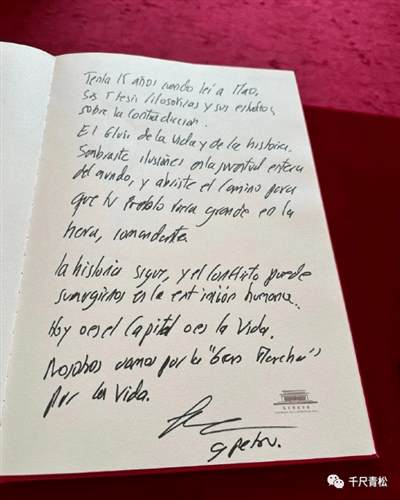 Tenía 15 años cuando leí a Mao,
Sus Thesis filosoficas y sus estudios
sobre la contradiccion.
El fluir de la vida y de la historia.
Sembraste ilusiones en la juventud entera
del mundo, y abriste el camino para
que tu Pueblo fuera grande en la
tierra, comandante.
la historia sigue, y el conflicto puede
sumergirnos en la extinción humana.
Hoy o es el Capital o es la Vida.
Nosotros vamos por la "Gran Marcha"
por la Vida.
G Petro.
千尺青松